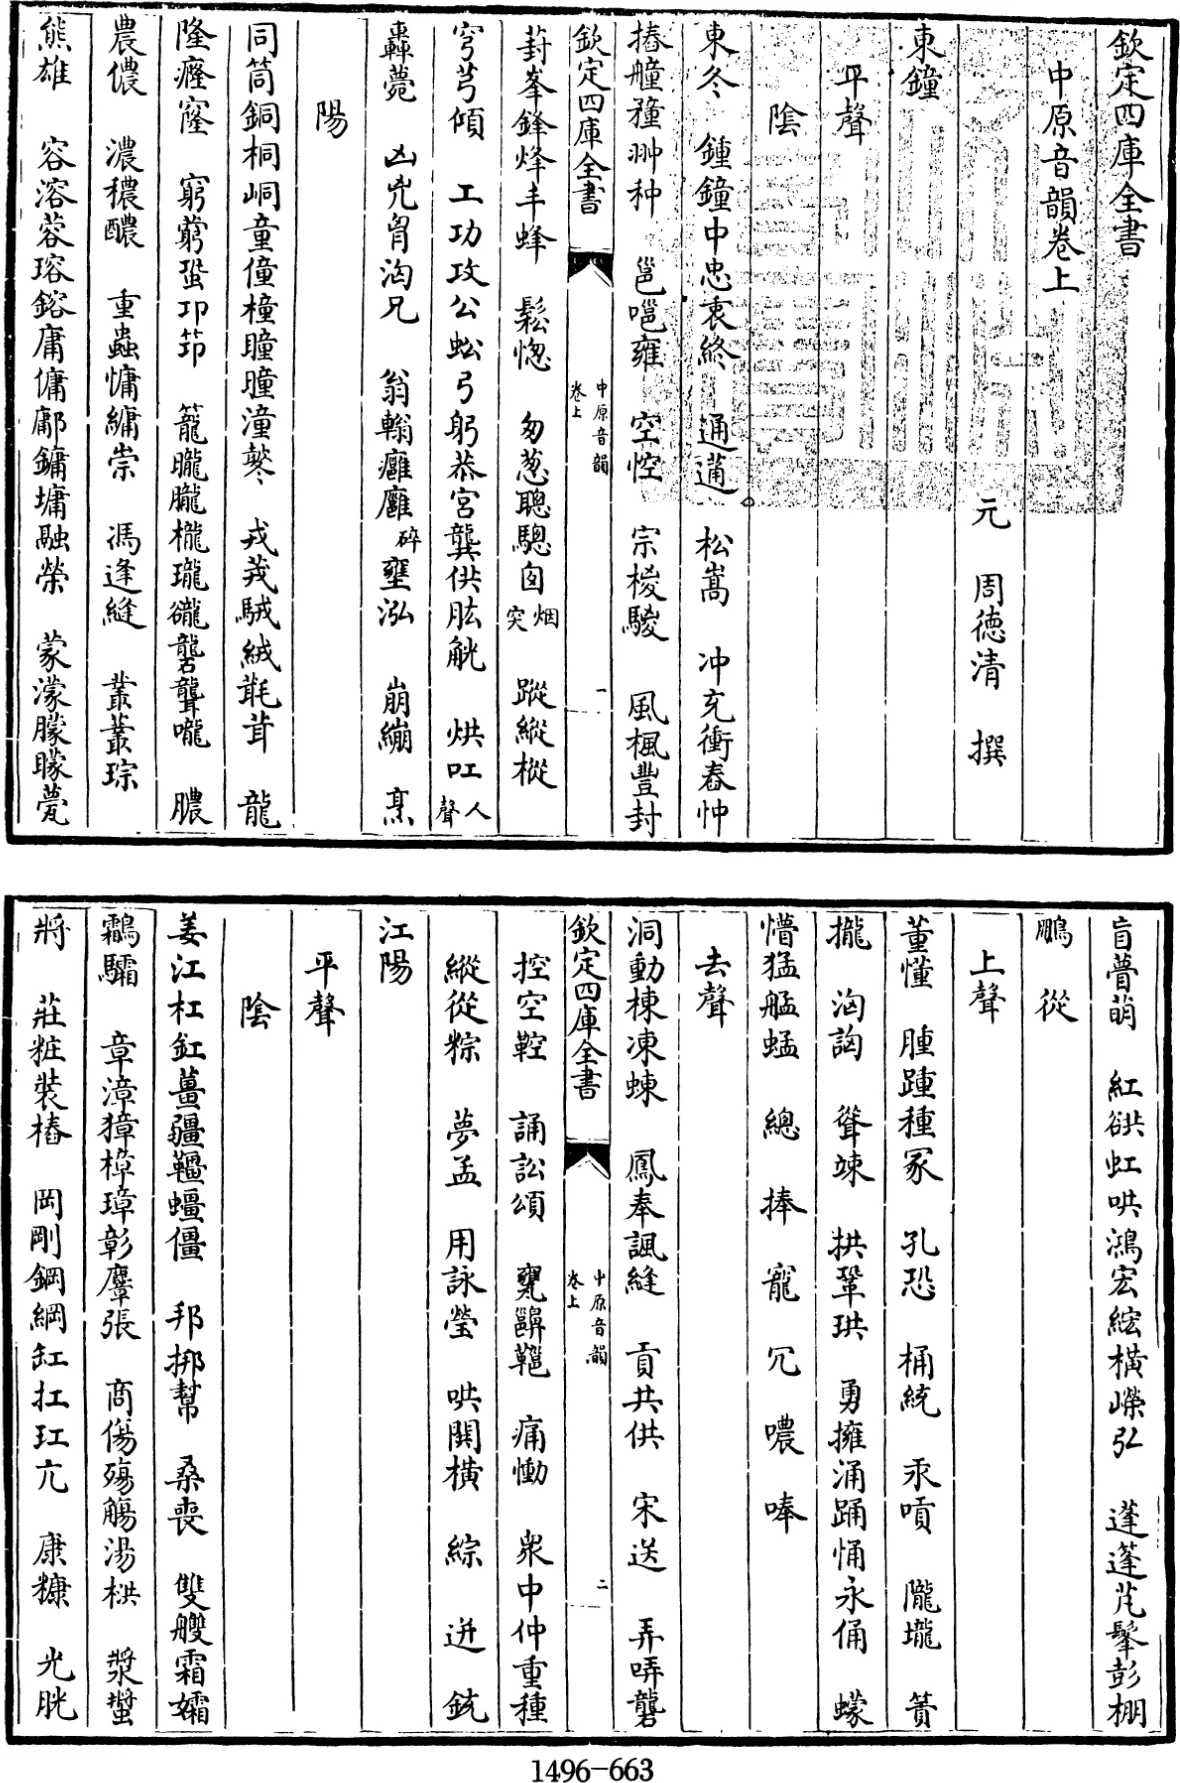 欽定四庫全書
中原音韻卷上
元 周德清 撰
東鐘
平聲
陰
東冬 鍾鐘中忠衷終 通蓪 松嵩 冲充衝舂忡
摏艟穜翀种 邕噰雍 空悾 宗椶騣 風楓豐封
欽定四庫全書 中原音韻 卷上 一
葑峯鋒烽丰蜂 鬆惚 匆蔥聰驄囱烟突 蹤縱樅
穹芎傾 工功攻公蚣弓躬恭宮龔供肱觥 烘叿人聲
轟薨 凶兇胷洶兄 翁螉癰廱碎壅泓 崩繃 烹
陽
同筒銅桐峒童僮橦曈瞳潼鼕 戎茙駥絨毦茸 龍
隆癃窿 窮藭蛩卭笻 籠朧朧櫳瓏礲礱聾嚨 膿
農儂 濃穠醲 重蟲慵鱅崇 馮逢縫 叢藂琮
熊雄 容溶蓉瑢鎔庸傭鄘鏞墉融榮 蒙濛朦矇甍
盲瞢萌 紅谼虹哄鴻宏紘橫嶸弘 蓬篷芃髼彭棚
鵬 從
上聲
董懂 腫踵種冢 孔恐 桶統 汞嗊 隴壠 簣
攏 洶詾 聳竦 拱鞏珙 勇擁涌踊慂永俑 蠓
懵猛艋蜢 總 捧 寵 冗 噥 唪
去聲
洞動棟凍蝀 鳳奉諷縫 貢共供 宋送 弄哢礱
欽定四庫全書 中原音韻 卷上 二
控空鞚 誦訟頌 甕齆韝 痛慟 衆中仲重種
縱從粽 夢孟 用詠瑩 哄鬨橫 綜 迸 銃
江陽
平聲
陰
姜江杠釭薑疆韁蠮僵 邦梆幫 桑喪 雙艭霜孀
鸘驦 章漳獐樟璋彰麞張 商傷殤觴湯栱 漿螿
將 莊粧裝樁 岡剛鋼綱缸扛玒亢 康糠 光胱
1496-663